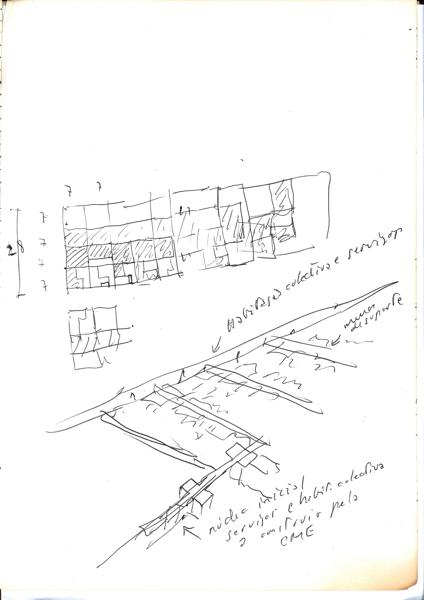 7 7
7
7
7
7
28
Habitação colectiva e serviços
muro
de suporte
núcleo inicial
serviços e habit. colectiva
a construir pela
CME